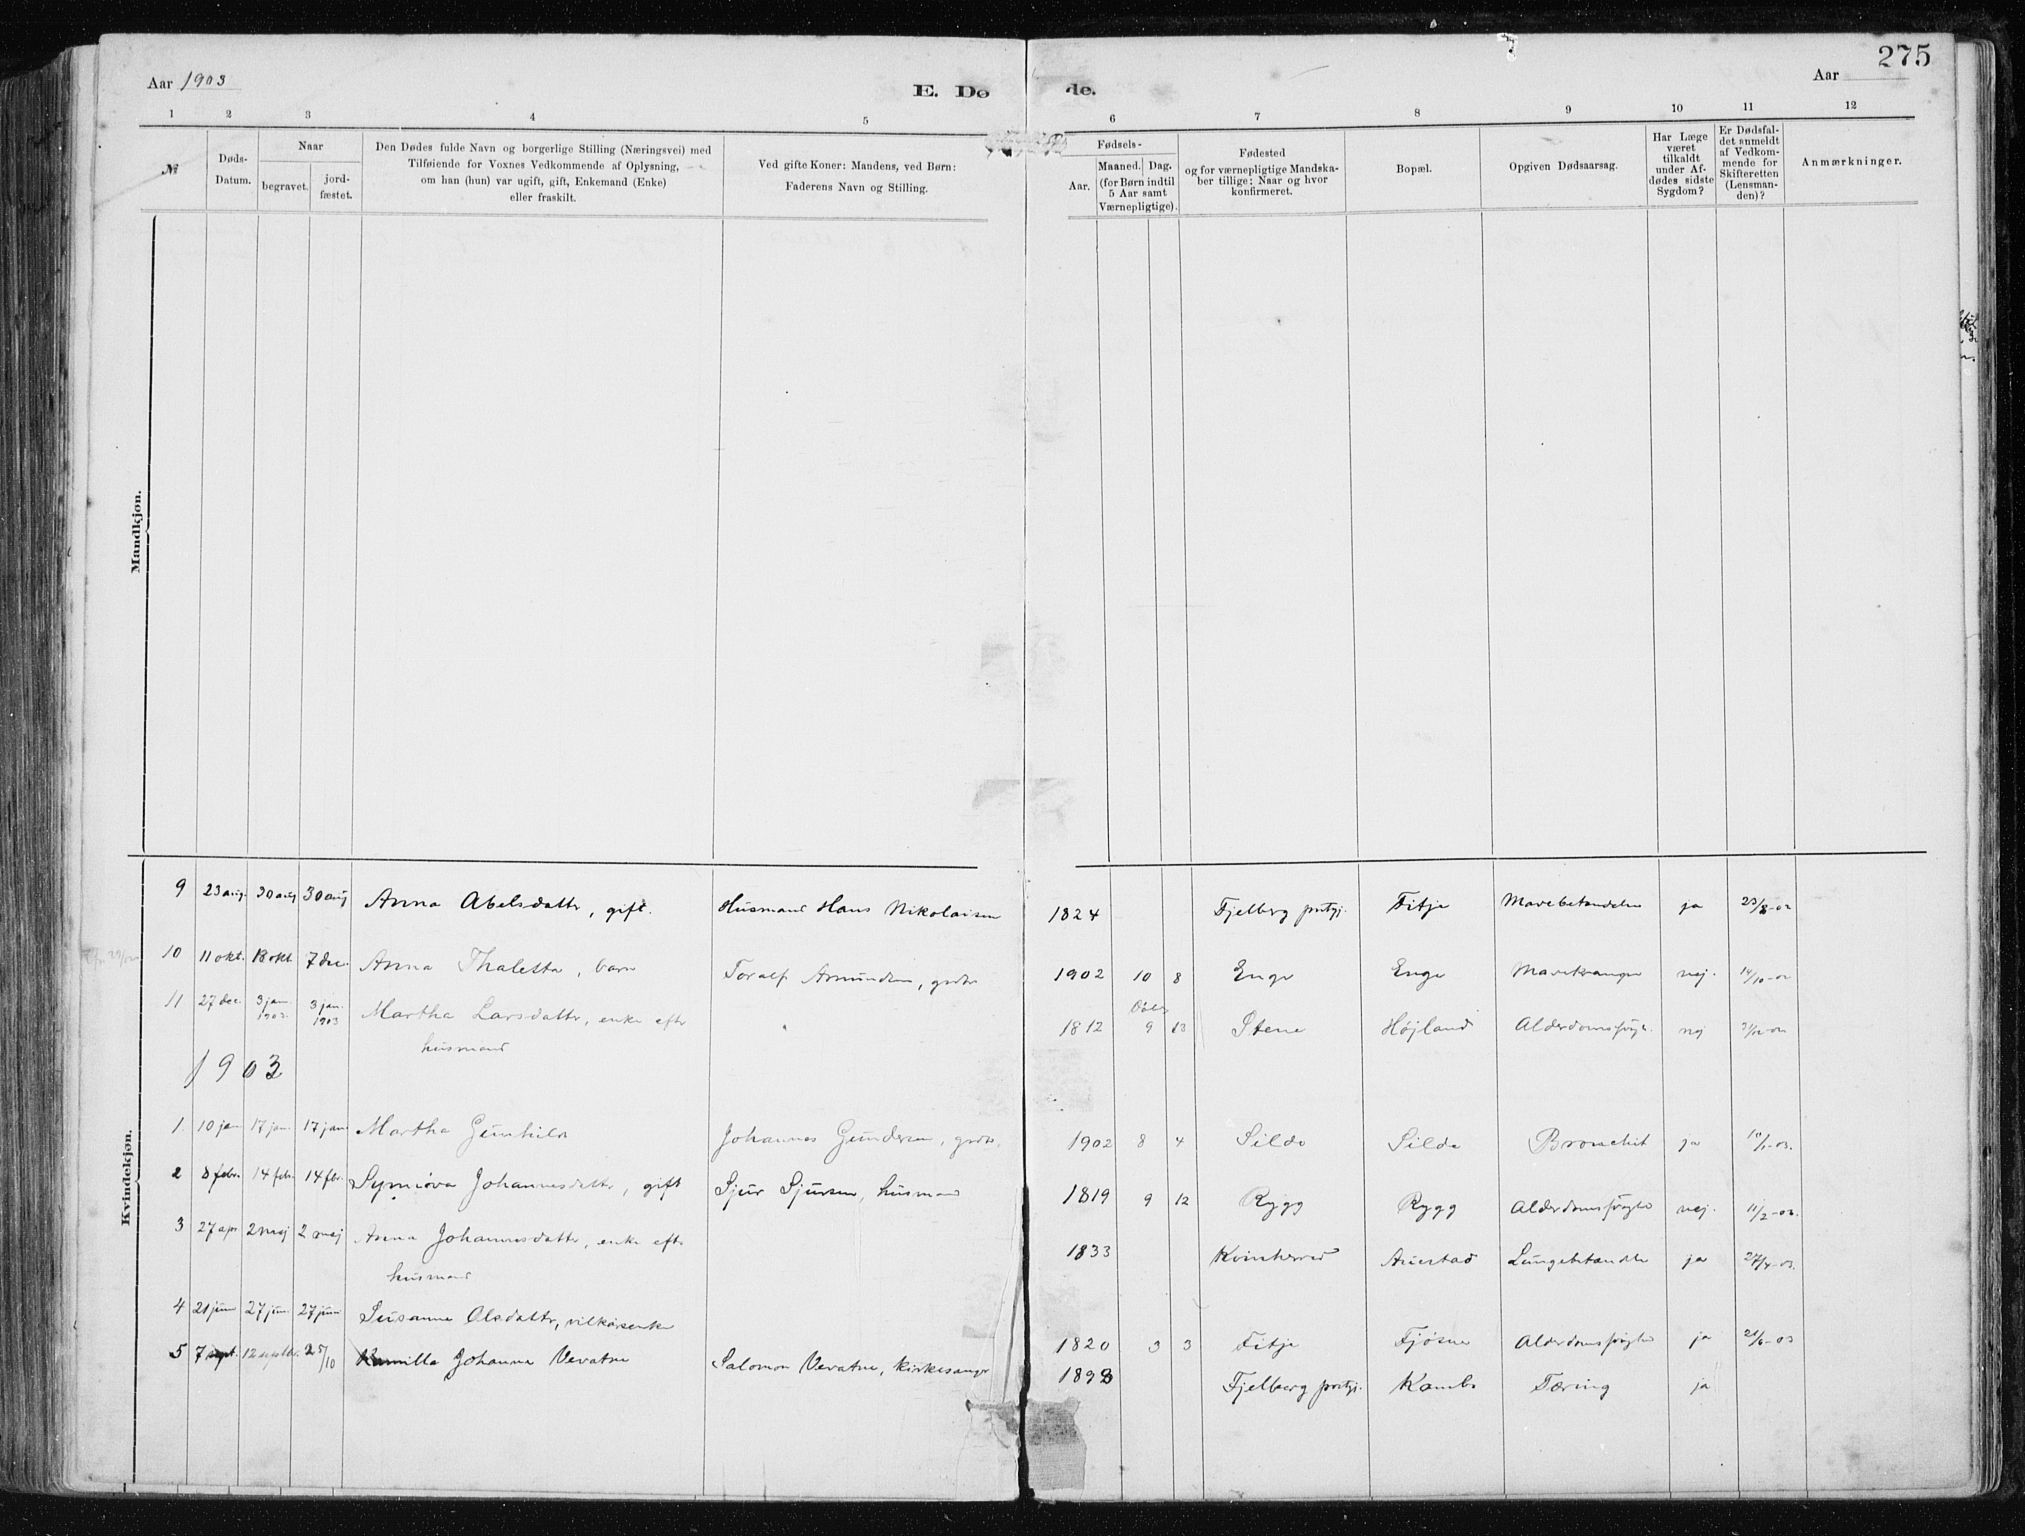 275
Aar 1903
E. Dø de.
Aar
1 2 3 4 5 6 7 8 9 10 11 12
№
Døds-Datum.
Naar
begravet.
jord-fæstet.
Den Dødes fulde Navn og borgerlige Stilling (Næringsvei) med
Tilføiende for Voxnes Vedkommende af Oplysning,
om han (hun) var ugift, gift, Enkemand (Enke)
eller fraskilt.
Ved gifte Koner: Mandens, ved Børn:
Faderens Navn og Stilling.
Fødsels-
Aar.
Maaned. Dag.
(for Børn indtil
5 Aar samt
Værnepligtige).
Fødested
og for værnepligtige Mandska-
ber tillige: Naar og hvor
konfirmeret.
Bopæl.
Opgiven Dødsaarsag.
Har Læge
været
tilkaldt
under Af-
dødes sidste
Sygdom?
Er Dødsfal-
det anmeldt
af Vedkom-
mende for
Skifteretten
(Lensman-
den)?
Anmærkninger.
Mandkjøn.
Kvindekjøn.
9 23 aug. 30 aug 30 aug Anna Abelsdattr, gift. Husmand Hans Nikolaisen 1824 Fjelberg prstgj. Fitje Mavebetændelse ja 23/8-02
10 11 okt. 18 okt. 7 dec. Anna Thaletta, barn Toralf Amundsen, grdbr 1902 10 8 Enge Enge Mavekrampe nej. 14/10-02
11 27 dec. 3 jan. 1903. 3 jan. 1903 Martha Larsdattr, enke eftr 1812 9 13 Stene Højland Alderdomssvagh. nej
husmand
1903
1 10 jan 17 jan. 17 jan. Martha Gunhild Johannes Gundersen, grdbr. 1902 8 4 Silde Silde Bronchit ja
2 8 febr. 14 feb. 14 fbr. Synnøva Johannesdattr, gift Sjur Sjursen, husmand 1819 9 12 Rygg Rygg Alderdomssvaghd nej. 11/2-03.
3 27 apr 2 maj 2 maj Anna Johannesdattr, enke eftr 1833 Kvinherred Auestad Lungebetændlse ja 27/4-03.
husmand
4 21 juni 27 jun. 27 juni Susanna Olsdattr, vilkårsenke 1820 3 3 Fitje Fjøsne Alderdomssvaghd ja 21/6-03
5 7 sept. 12 septbr. 25/10 Kamilla Johanna Vevatne Salomon Vevatne, kirkesanger 1893 Fjelberg prstgj. Kambe Tæring ja